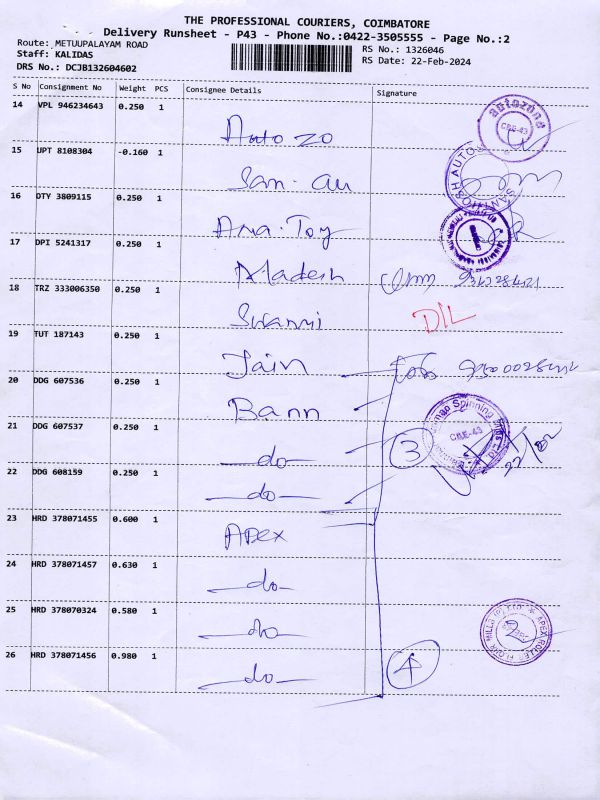 THE PROFESSIONAL COURIERS, COIMBATORE
Delivery Runsheet - P43 - Phone No.:0422-3505555 - Page No.:2
Route: METUUPALAYAM ROAD
RS No.: 1326046
Staff: KALIDAS
RS Date: 22-Feb-2024
DRS No.: DCJB132604602
S No Consignment No Weight PCS Consignee Details Signature
14 VPL 946234643 0.250 1
Auto zo
autozone CBE-43
15 UPT 8108304 -0.160 1
San. au
SANTHOSH AUTO
16 DTY 3809115 0.250 1
Ama. Toy
17 DPI 5241317 0.250 1
Madesh
18 TRZ 333006350 0.250 1
Swami DIL
19 TUT 187143 0.250 1
Jain
20 DDG 607536 0.250 1
Bann
21 DDG 607537 0.250 1
do 3
Spinning CBE-43
22 DDG 608159 0.250 1
do
23 HRD 378071455 0.600 1
Apex
24 HRD 378071457 0.630 1
do
25 HRD 378070324 0.580 1
do
2 APEX ROLLER FLOUR MILLS
26 HRD 378071456 0.980 1
do 4